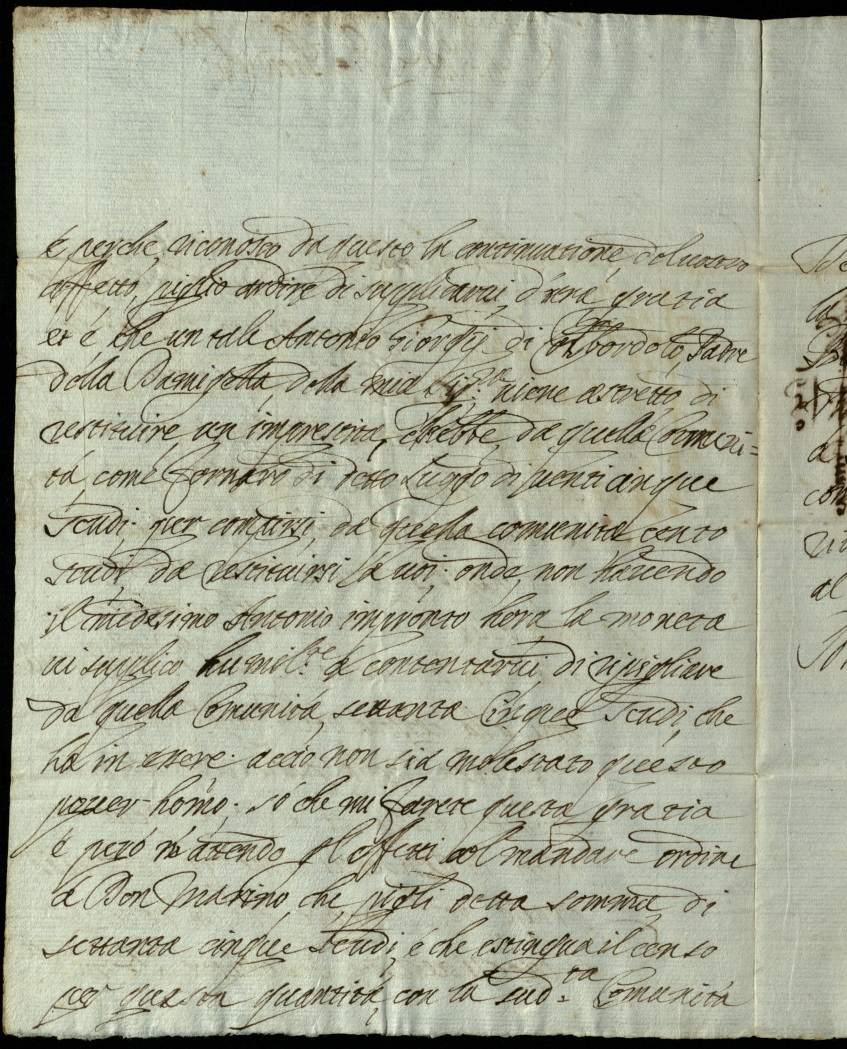 é perche riconosco da questo la continuatione del vostro
affetto, piglio ardire di supplicarvi d'una gratia
et é che un tale Antonio Giorgij di Padre
della Damigella della mia Sig.ra viene astretto di
restituire un imprestito, ch'ebbe da quella Comuni=
tá, come fornaro di detto Luogo di venti cinque
scudi per compirsi da quella comunita cento
scudi da restituirsi á voi. onde non havendo
il medesimo Antonio impronto hora la moneta
vi supplico humil.te á contentarvi di ripigliare
da quella Comunitá settanta Cinque scudi, che
ha in essere. acció non sia molestato questo
pover homo. só che mi farete questa gratia
é peró n'attendo gl'effetti col mandare ordine
á Don Marino che pigli detta somma di
settanta cinque scudi, é che estingua il censo
per questa quantitá con la sud.ta Comunitá
al